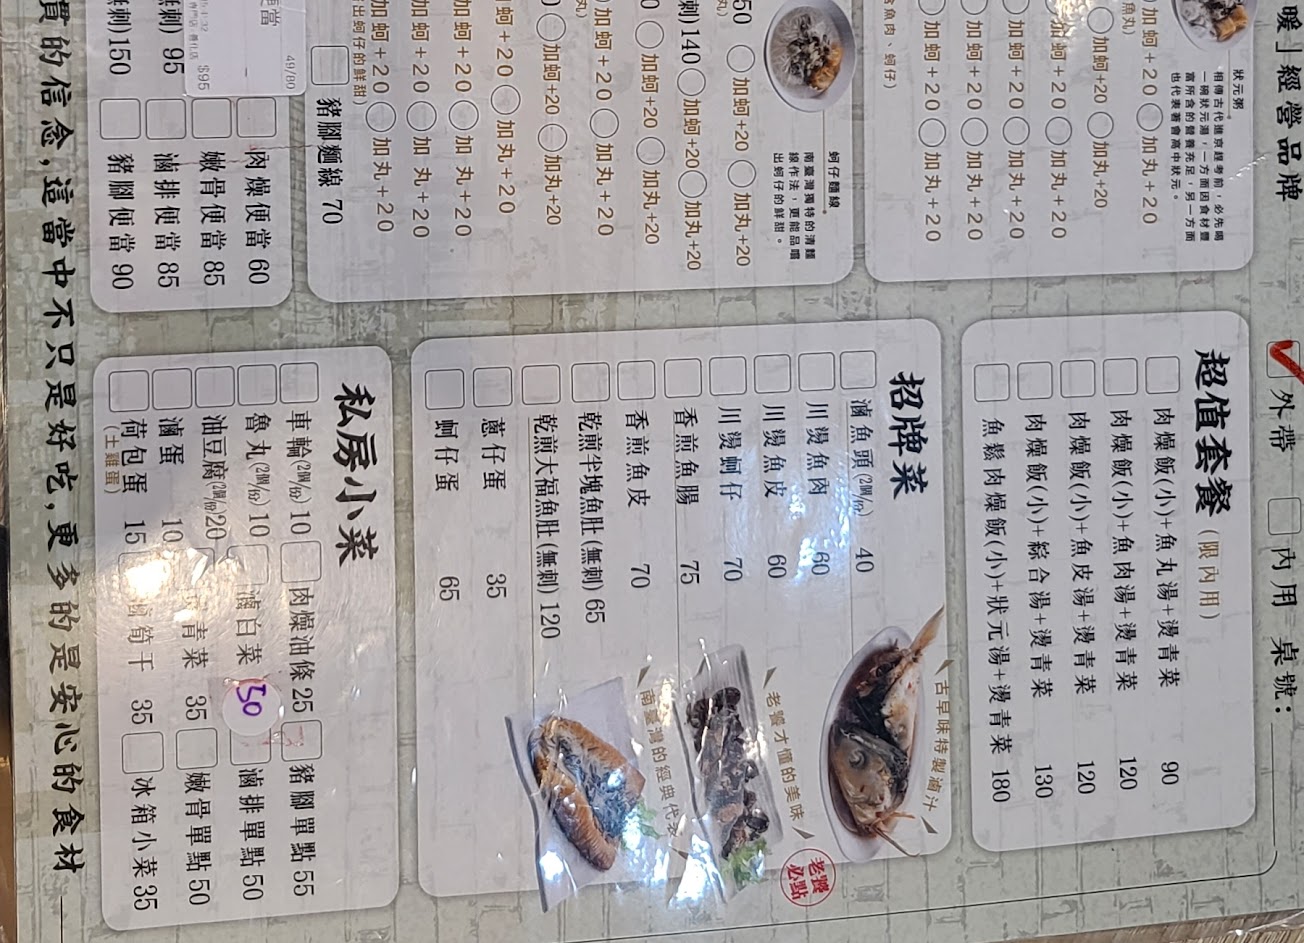 暖」經營品牌
外帶 內用 桌號:
狀元粥。
相傳古代進京趕考前,必先喝
一碗狀元湯,一方面因食材豐
富所含的營養充足,另一方面
也代表著會高中狀元。
加蚵+20 加丸+20
魚丸)
加蚵+20 加丸+20
加蚵+20 加丸+20
加蚵+20 加丸+20
加蚵+20 加丸+20
加蚵+20 加丸+20
魚肉、蚵仔)
蚵仔麵線。
南臺灣獨特的清麵
線作法,更能品嚐
出蚵仔的鮮甜。
50 加蚵+20 加丸+20
刺)140 加蚵+20 加丸+20
加蚵+20 加丸+20
加蚵+20 加丸+20
加蚵+20 加丸+20
蚵+20 加丸+20
加蚵+20 加丸+20
加蚵+20 加丸+20
加蚵+20 加丸+20
出蚵仔的鮮甜)
豬腳麵線 70
49/80
$95
肉燥便當 60
嫩骨便當 85
95 滷排便當 85
刺)150 豬腳便當 90
超值套餐(限內用)
肉燥飯(小)+魚丸湯+燙青菜 90
肉燥飯(小)+魚肉湯+燙青菜 120
肉燥飯(小)+魚皮湯+燙青菜 120
肉燥飯(小)+綜合湯+燙青菜 130
魚鬆肉燥飯(小)+狀元湯+燙青菜 180
招牌菜
滷魚頭(2個/份) 40
川燙魚肉 60
川燙魚皮 60
川燙蚵仔 70
香煎魚腸 75
香煎魚皮 70
乾煎半塊魚肚(無刺) 65
乾煎大福魚肚(無刺) 120
蔥仔蛋 35
蚵仔蛋 65
古早味特製滷汁
老饕才懂的美味
南臺灣的經典代表
老饕必點
私房小菜
車輪(2個/份) 10 肉燥油條 25 豬腳單點 55
魯丸(2個/份) 10 滷白菜 50 滷排單點 50
油豆腐(2個/份) 20 青菜 35 嫩骨單點 50
滷蛋 10 筍干 35 冰箱小菜 35
荷包蛋 15
(土雞蛋)
買的信念,這當中不只是好吃,更多的是安心的食材